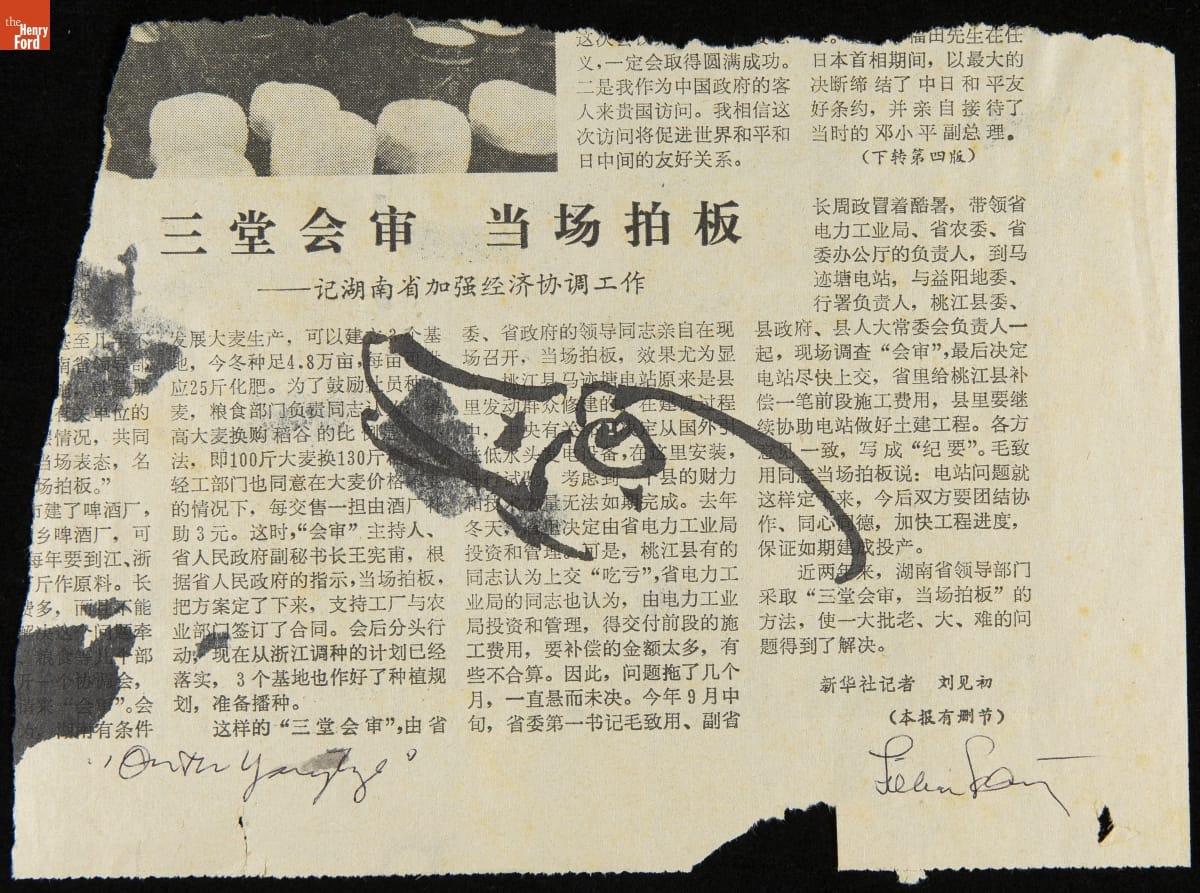 the Henry Ford
义，一定会取得圆满成功。
二是我作为中国政府的客
人来贵国访问。我相信这
次访问将促进世界和平和
日中间的友好关系。
福田先生在任
日本首相期间，以最大的
决断缔结了中日和平友
好条约，并亲自接待了
当时的邓小平副总理。
（下转第四版）
三堂会审 当场拍板
——记湖南省加强经济协调工作
单位的
情况，共同
当场表态，名
场拍板。”
建了啤酒厂，
乡啤酒厂，可
每年要到江、浙
斤作原料。长
费多，而且不能
问题牵
粮食等几个部
开一个协调会，
“会审”。会
湖南有条件
发展大麦生产，可以建立3个基
地，今冬种足4.8万亩，每亩
应25斤化肥。为了鼓励社员种
麦，粮食部门负责同志
高大麦换购稻谷的比例
法，即100斤大麦换130斤
轻工部门也同意在大麦价格
的情况下，每交售一担由酒厂补
助3元。这时，“会审”主持人、
省人民政府副秘书长王宪甫，根
据省人民政府的指示，当场拍板，
把方案定了下来，支持工厂与农
业部门签订了合同。会后分头行
动，现在从浙江调种的计划已经
落实，3个基地也作好了种植规
划，准备播种。
这样的“三堂会审”，由省
委、省政府的领导同志亲自在现
场召开，当场拍板，效果尤为显
桃江县马迹塘电站原来是县
里发动群众修建的。在建设过程
中，决定从国外引
进低水头发电设备，在这里安装，
考虑到一个县的财力
和技术力量无法如期完成。去年
冬天，决定由省电力工业局
投资和管理。可是，桃江县有的
同志认为上交“吃亏”，省电力工
业局的同志也认为，由电力工业
局投资和管理，得交付前段的施
工费用，要补偿的金额太多，有
些不合算。因此，问题拖了几个
月，一直悬而未决。今年9月中
旬，省委第一书记毛致用、副省
长周政冒着酷署，带领省
电力工业局、省农委、省
委办公厅的负责人，到马
迹塘电站，与益阳地委、
行署负责人，桃江县委、
县政府、县人大常委会负责人一
起，现场调查“会审”，最后决定
电站尽快上交，省里给桃江县补
偿一笔前段施工费用，县里要继
续协助电站做好土建工程。各方
意见一致，写成“纪要”。毛致
用同志当场拍板说：电站问题就
这样定下来，今后双方要团结协
作、同心同德，加快工程进度，
保证如期建成投产。
近两年来，湖南省领导部门
采取“三堂会审，当场拍板”的
方法，使一大批老、大、难的问
题得到了解决。
新华社记者 刘见初
（本报有删节）
"On the Yangtze"